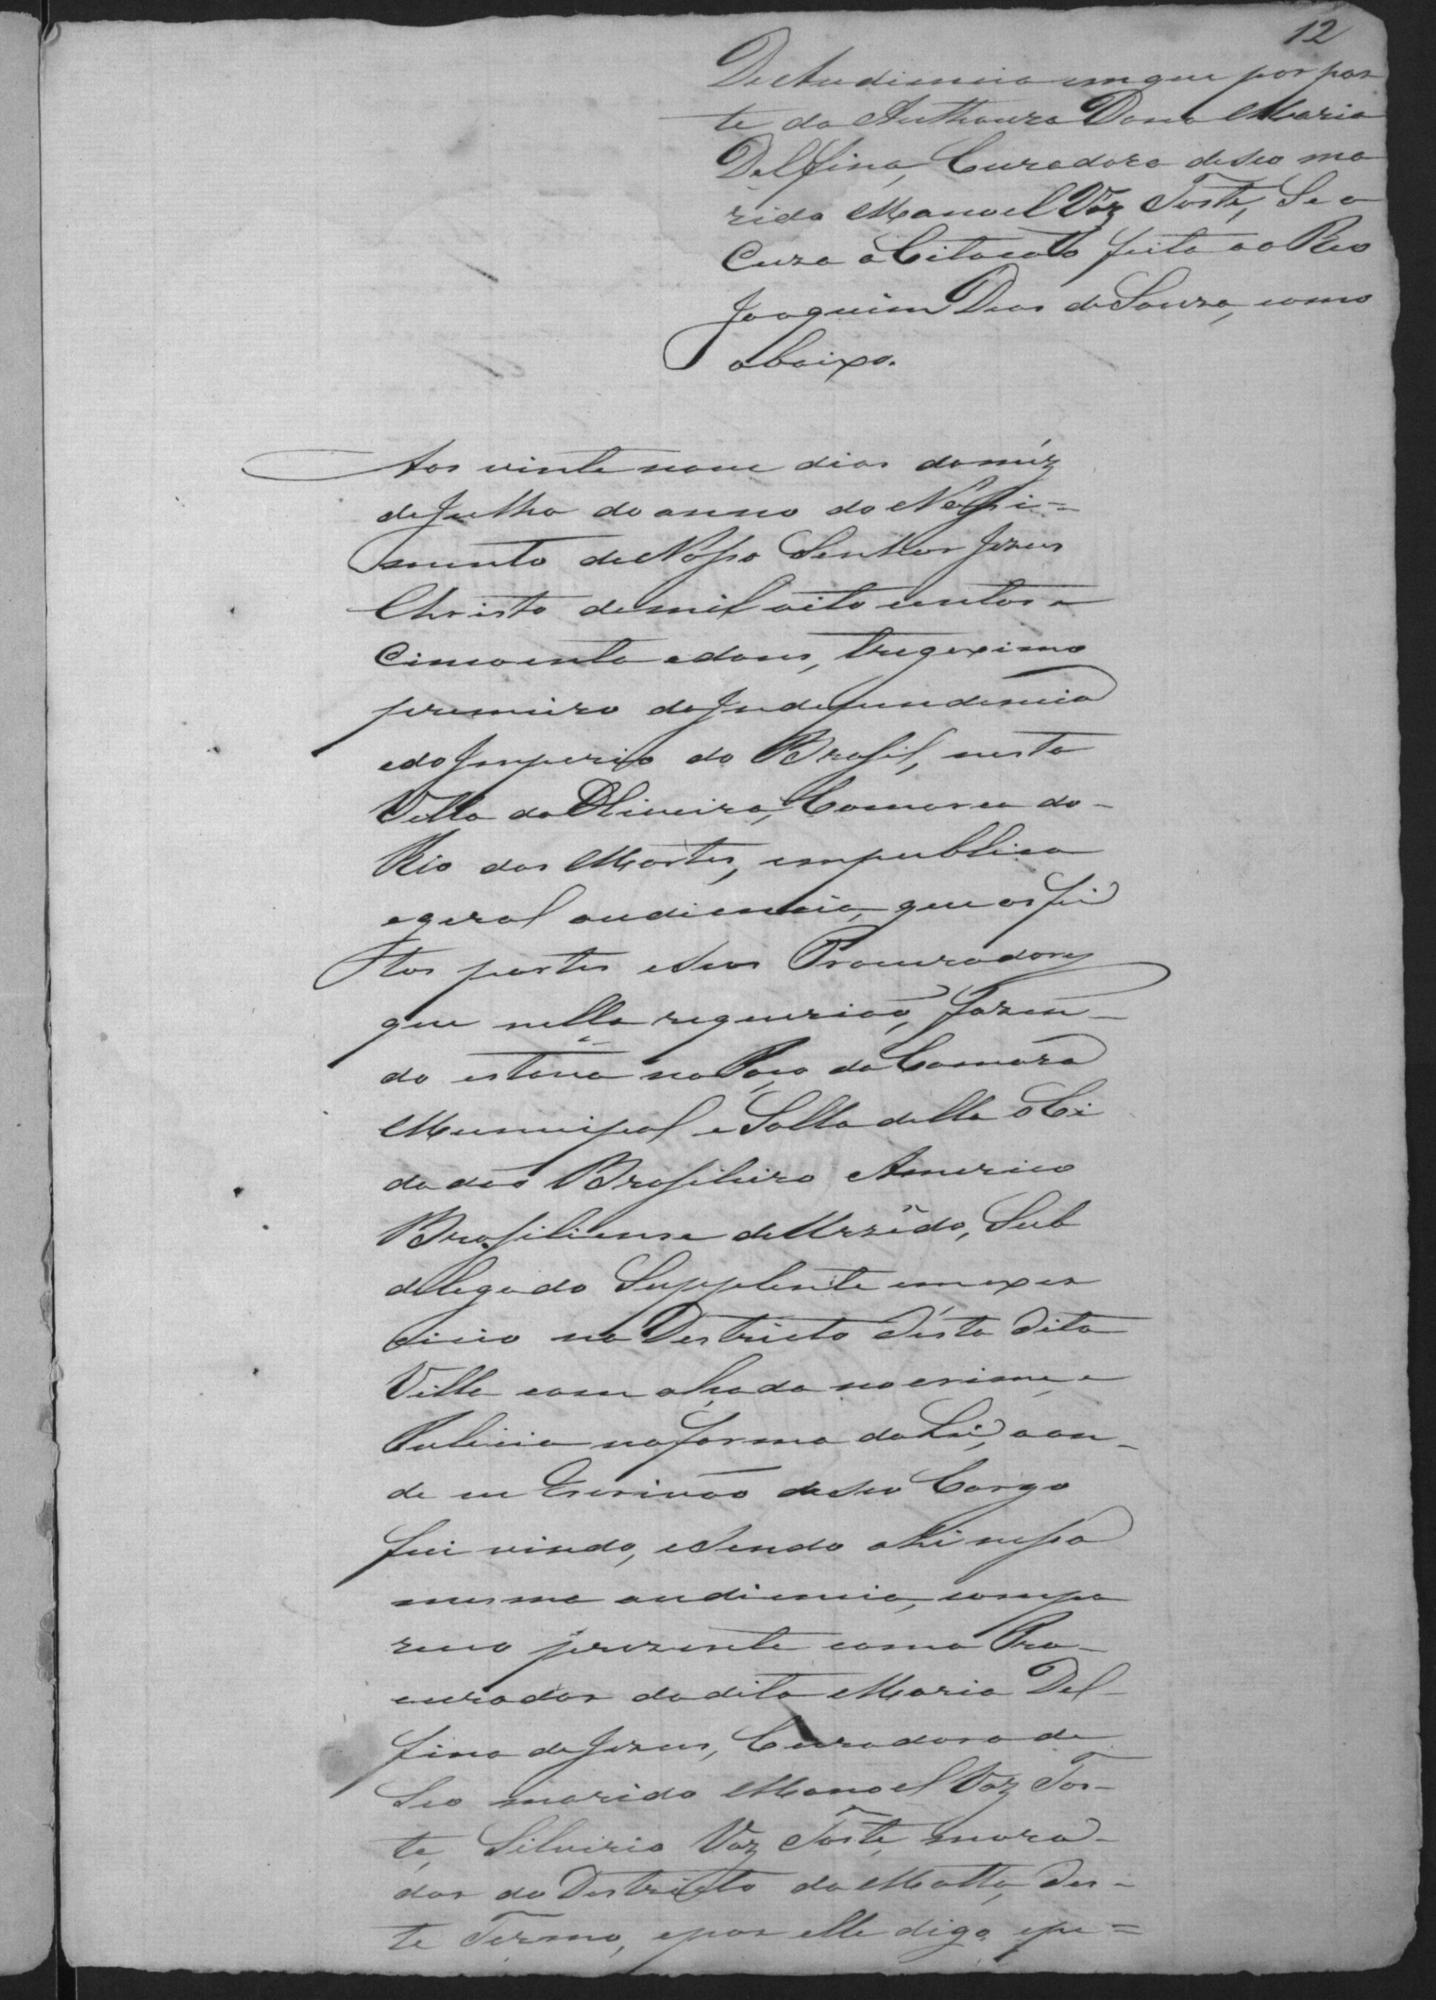 12
De Audiencia em que por par
te da Authoura Dona Maria
Delfina, Curadora de seo ma
rido Manoel Vaz Toste, Se a
Cuza a Citacaõ feita ao Reo
Joaquim Dias de Souza, como
abaixo.
Aos vinte nove dias do mêz
de Julho do anno do Nassi=
mento de Nosso Senhor Jezus
Christo de mil oito centos e
Cincoenta e dous, trigeximo
premeiro da Independencia
e do Imperio do Brasil, nesta
Villa da Oliveira, Comarca do
Rio das Mortes, em publica
e geral audiencia, que as fei
tos partes e seus Procuradores
que nella requeriaõ, fazen-
do estava no Paço da Camara
Municipal e Salla della o Ci
dadaõ Brasileiro Americo
Brasiliense de Urzêdo, Sub
delegado Supplente em exer
cicio no Destricto désta dita
Villa com alçada no crime, e
Policia na forma da Lei, aon-
de eu Escrivaõ de seo Cargo
fui vindo, e sendo ahi nessa
mesma audiencia, compa
receo prezente como Pro-
curador da dita Maria Del-
fina de Jezus, Curadora de
Seo marido Manoel Vaz Tos-
te, Silverio Vaz Toste, mora-
dor do Destricto da Matta, des-
te Termo, e por elle digo, e pe=